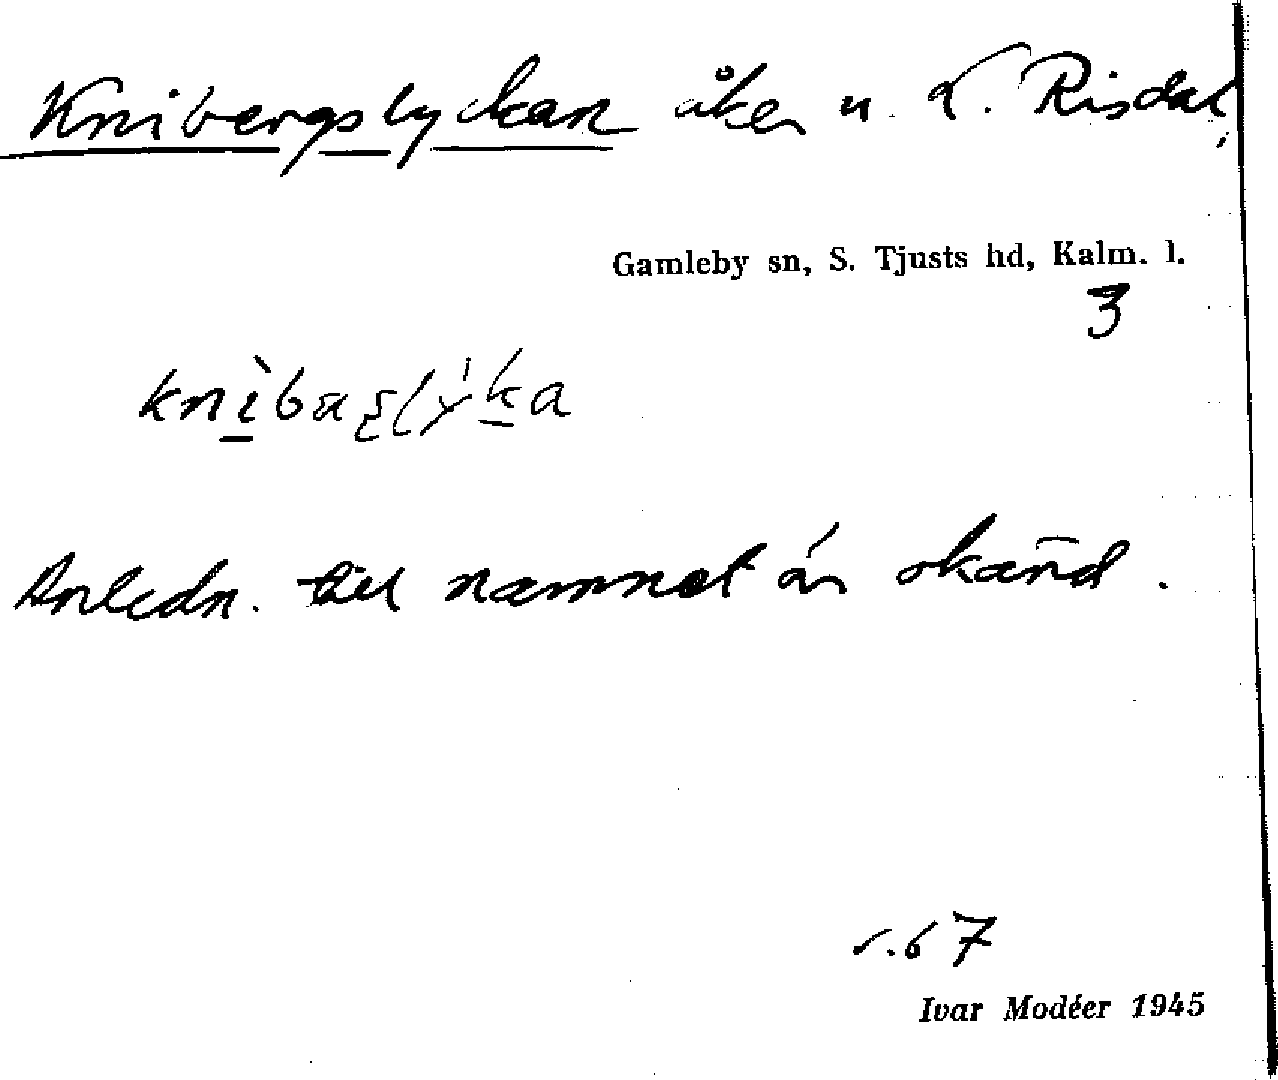 Knibergslyckan åker u. L. Risdal,
Gamleby sn, S. Tjusts hd, Kalm. l.
3
Anledn. till namnet är okänd.
s.67
Ivar Modéer 1945